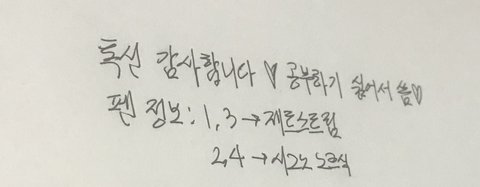 톡선 감사합니다 ♡ 공부하기 싫어서 씀♡
펜 정보 : 1, 3 → 제트스트림
2, 4 → 시그노 노크식